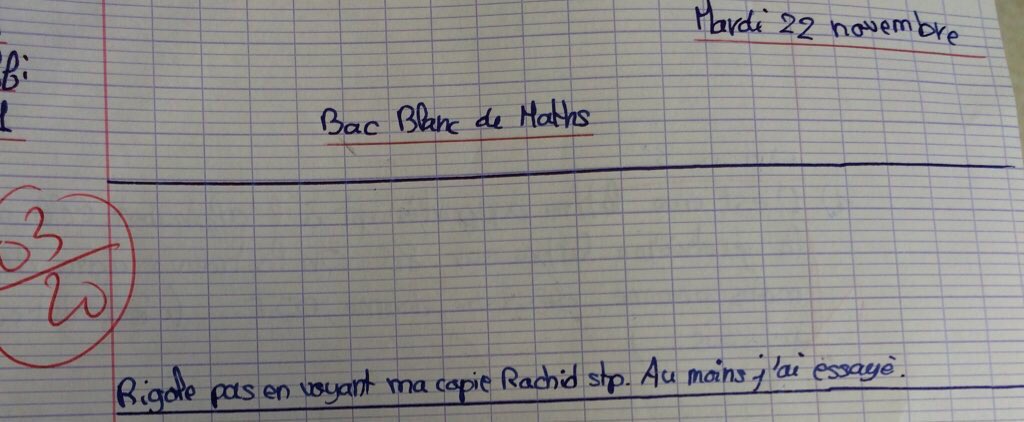 Mardi 22 novembre
Bac Blanc de Maths
03
20
Rigole pas en voyant ma copie Rachid stp. Au moins j'ai essayé.